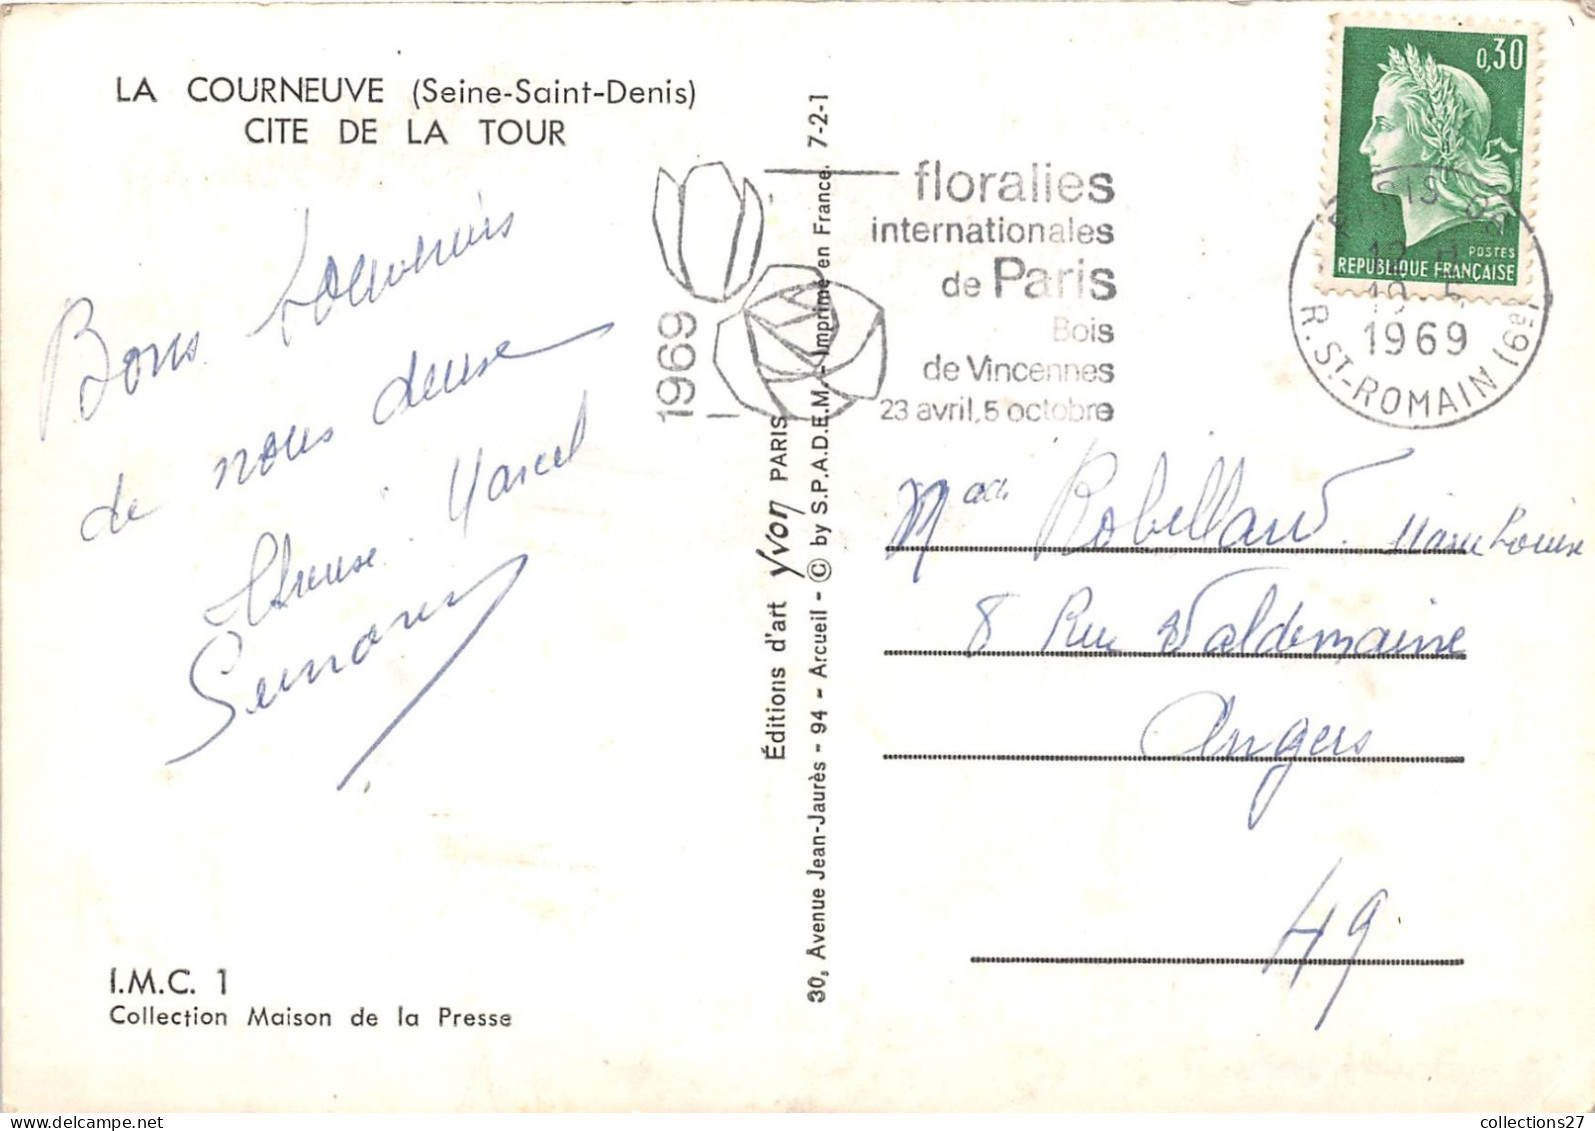 LA COURNEUVE (Seine-Saint-Denis)
CITE DE LA TOUR
Bons souvenirs
de nous deux
Marcel
I.M.C. 1
Collection Maison de la Presse
Éditions d'art Yvon PARIS
30, Avenue Jean-Jaurès - 94 - Arcueil - © by S.P.A.D.E.M. - Imprimé en France. 7-2-1
1969
floralies
internationales
de Paris
Bois
de Vincennes
23 avril, 5 octobre
0,30
POSTES
REPUBLIQUE FRANÇAISE
1969
R. ST-ROMAIN (6e)
Robillard
8 Rue Waldemaine
Angers
49
collections27